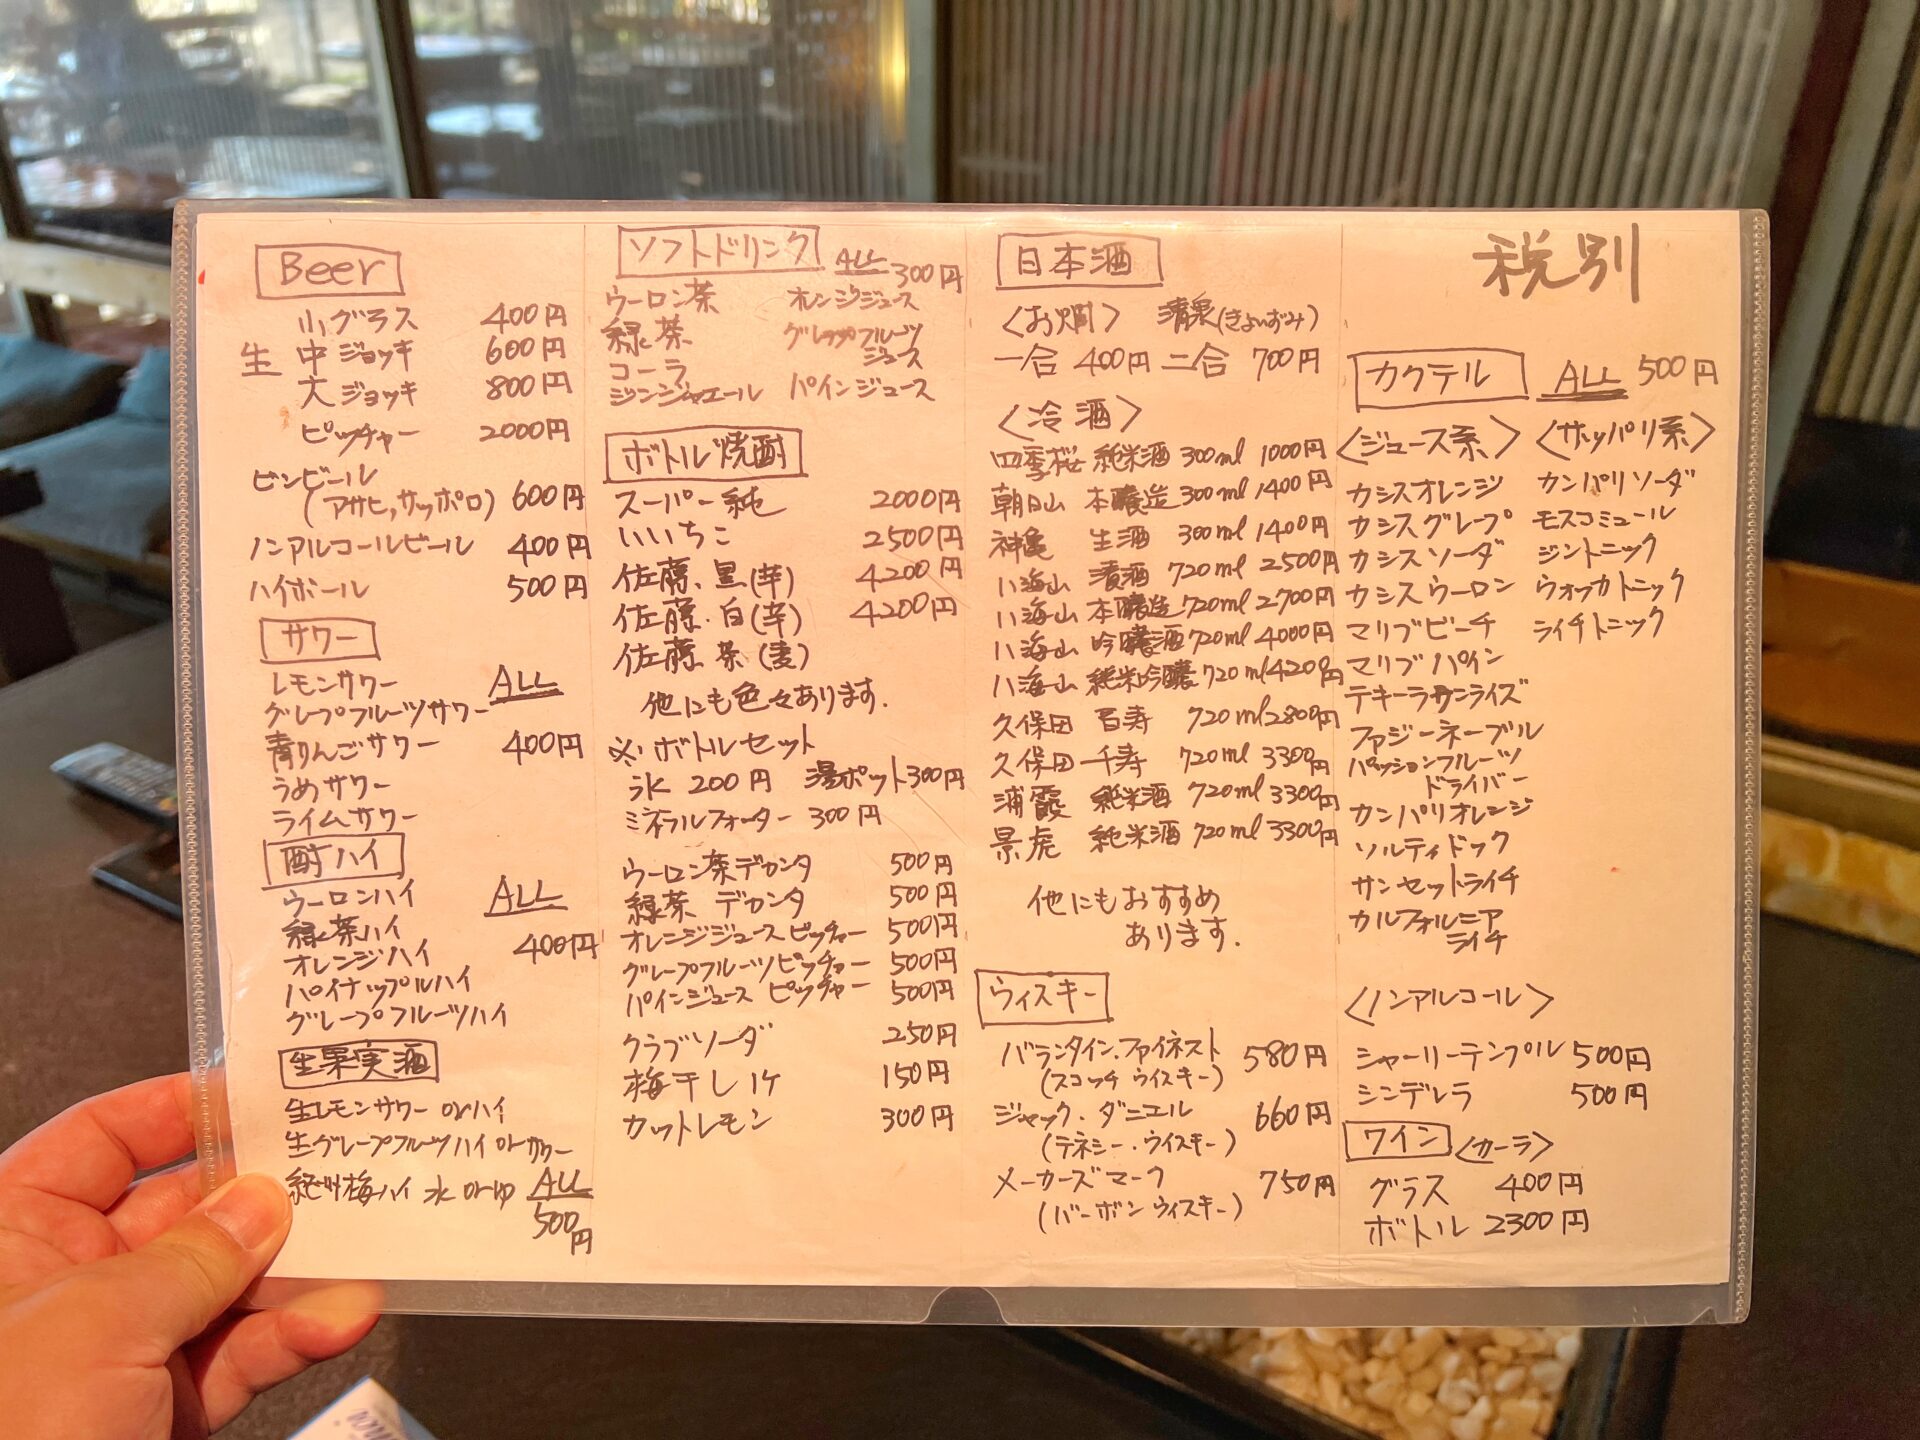 Beer
小グラス 400円
生 中ジョッキ 600円
大ジョッキ 800円
ピッチャー 2000円
ビンビール
(アサヒ,サッポロ) 600円
ノンアルコールビール 400円
ハイボール 500円
サワー
レモンサワー ALL
グレープフルーツサワー
青りんごサワー 400円
うめサワー
ライムサワー
酎ハイ
ウーロンハイ ALL
緑茶ハイ
オレンジハイ 400円
パイナップルハイ
グレープフルーツハイ
生果実酒
生レモンサワー orハイ
生グレープフルーツハイorサワー
紀州梅ハイ 水orゆ ALL
500円
ソフトドリンク ALL 300円
ウーロン茶 オレンジジュース
緑茶 グレープフルーツ
ジュース
コーラ
ジンジャエール パインジュース
ボトル焼酎
スーパー純 2000円
いいちこ 2500円
佐藤.黒(芋) 4200円
佐藤.白(芋) 4200円
佐藤.茶(麦)
他にも色々あります.
※ボトルセット
氷 200円 湯ポット300円
ミネラルウォーター 300円
ウーロン茶デカンタ 500円
緑茶 デカンタ 500円
オレンジジュースピッチャー 500円
グレープフルーツピッチャー 500円
パインジュース ピッチャー 500円
クラブソーダ 250円
梅干し1ケ 150円
カットレモン 300円
日本酒
〈お燗〉 清泉(きよいずみ)
一合 400円 二合 700円
〈冷酒〉
四季桜 純米酒 300ml 1000円
朝日山 本醸造 300ml 1400円
神亀 生酒 300ml 1400円
八海山 清酒 720ml 2500円
八海山 本醸造 720ml 2700円
八海山 吟醸酒 720ml 4000円
八海山 純米吟醸 720ml 4200円
久保田 百寿 720ml 2800円
久保田 千寿 720ml 3300円
浦霞 純米酒 720ml 3300円
景虎 純米酒 720ml 3300円
他にもおすすめ
あります.
ウィスキー
バランタイン.ファイネスト 580円
(スコッチ ウイスキー)
ジャック.ダニエル 660円
(テネシー.ウイスキー)
メーカーズマーク 750円
(バーボンウィスキー)
税別
カクテル ALL 500円
〈ジュース系〉 〈サッパリ系〉
カシスオレンジ カンパリソーダ
カシスグレープ モスコミュール
カシスソーダ ジントニック
カシスウーロン ウォッカトニック
マリブピーチ ライチトニック
マリブパイン
テキーラサンライズ
ファジーネーブル
パッションフルーツ
ドライバー
カンパリオレンジ
ソルティドック
サンセットライチ
カルフォルニア
ライチ
〈ノンアルコール〉
シャーリーテンプル 500円
シンデレラ 500円
ワイン 〈カーラ〉
グラス 400円
ボトル 2300円